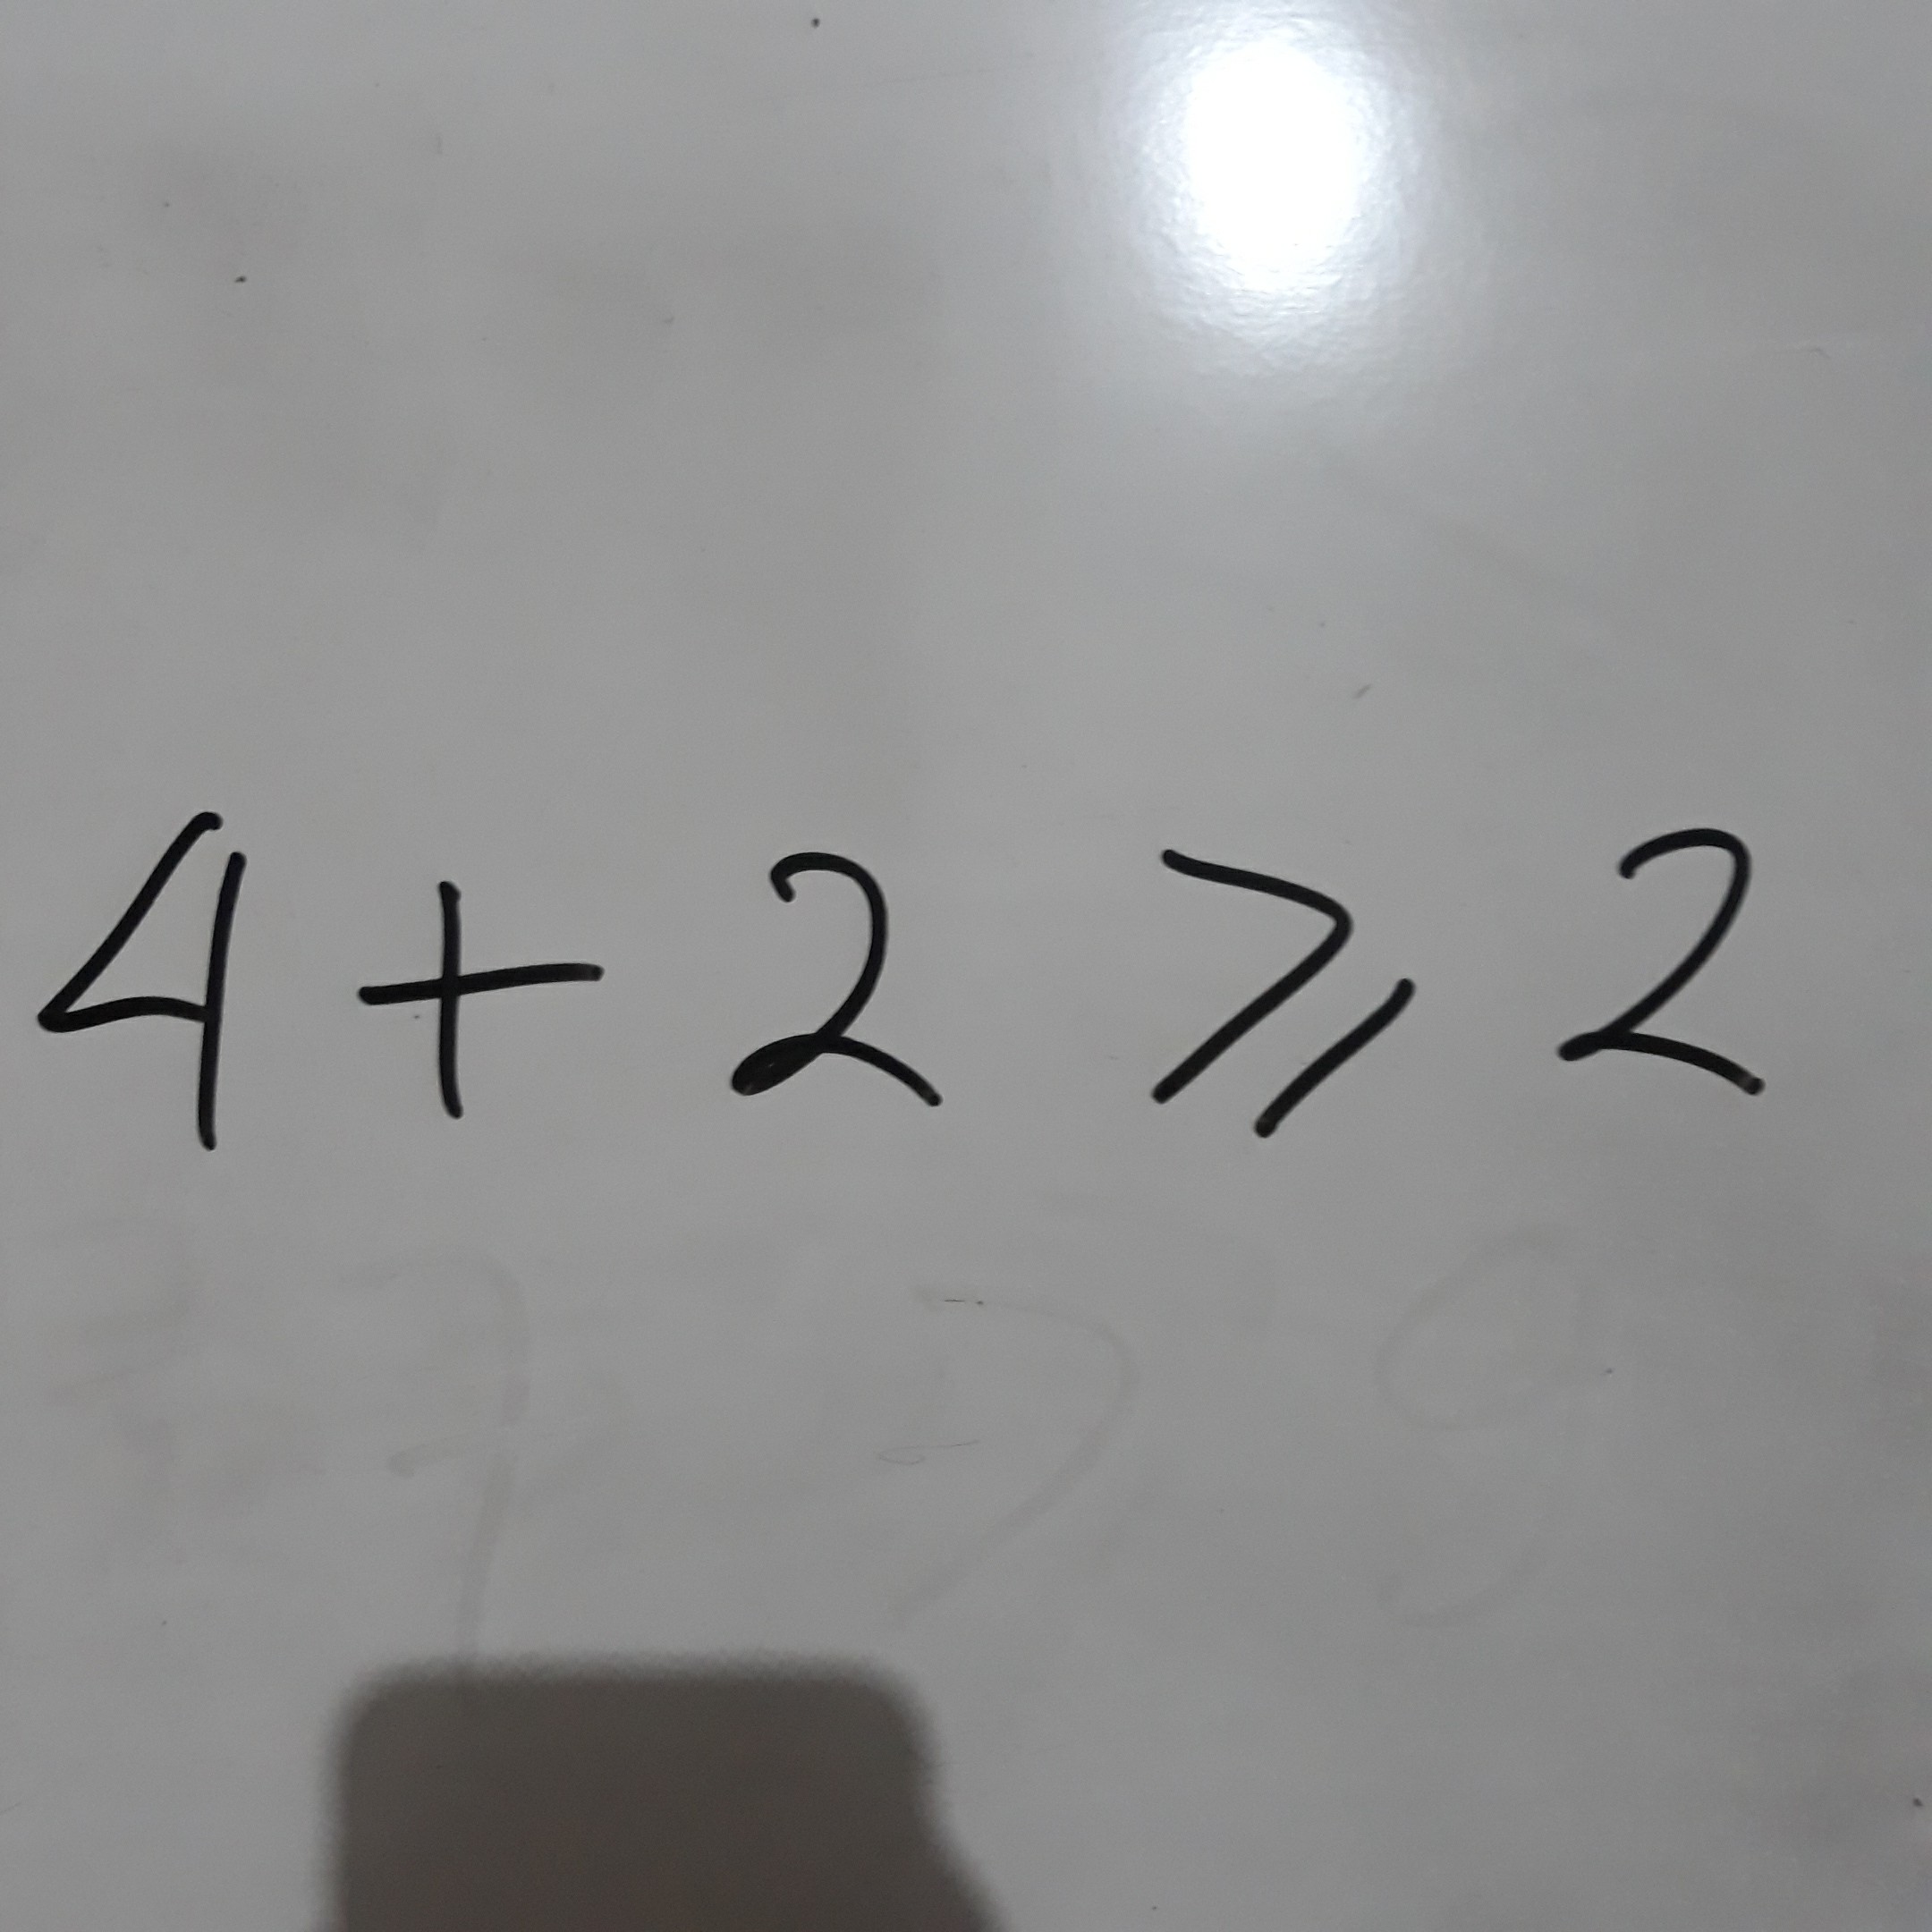 4 + 2 ⩾ 2